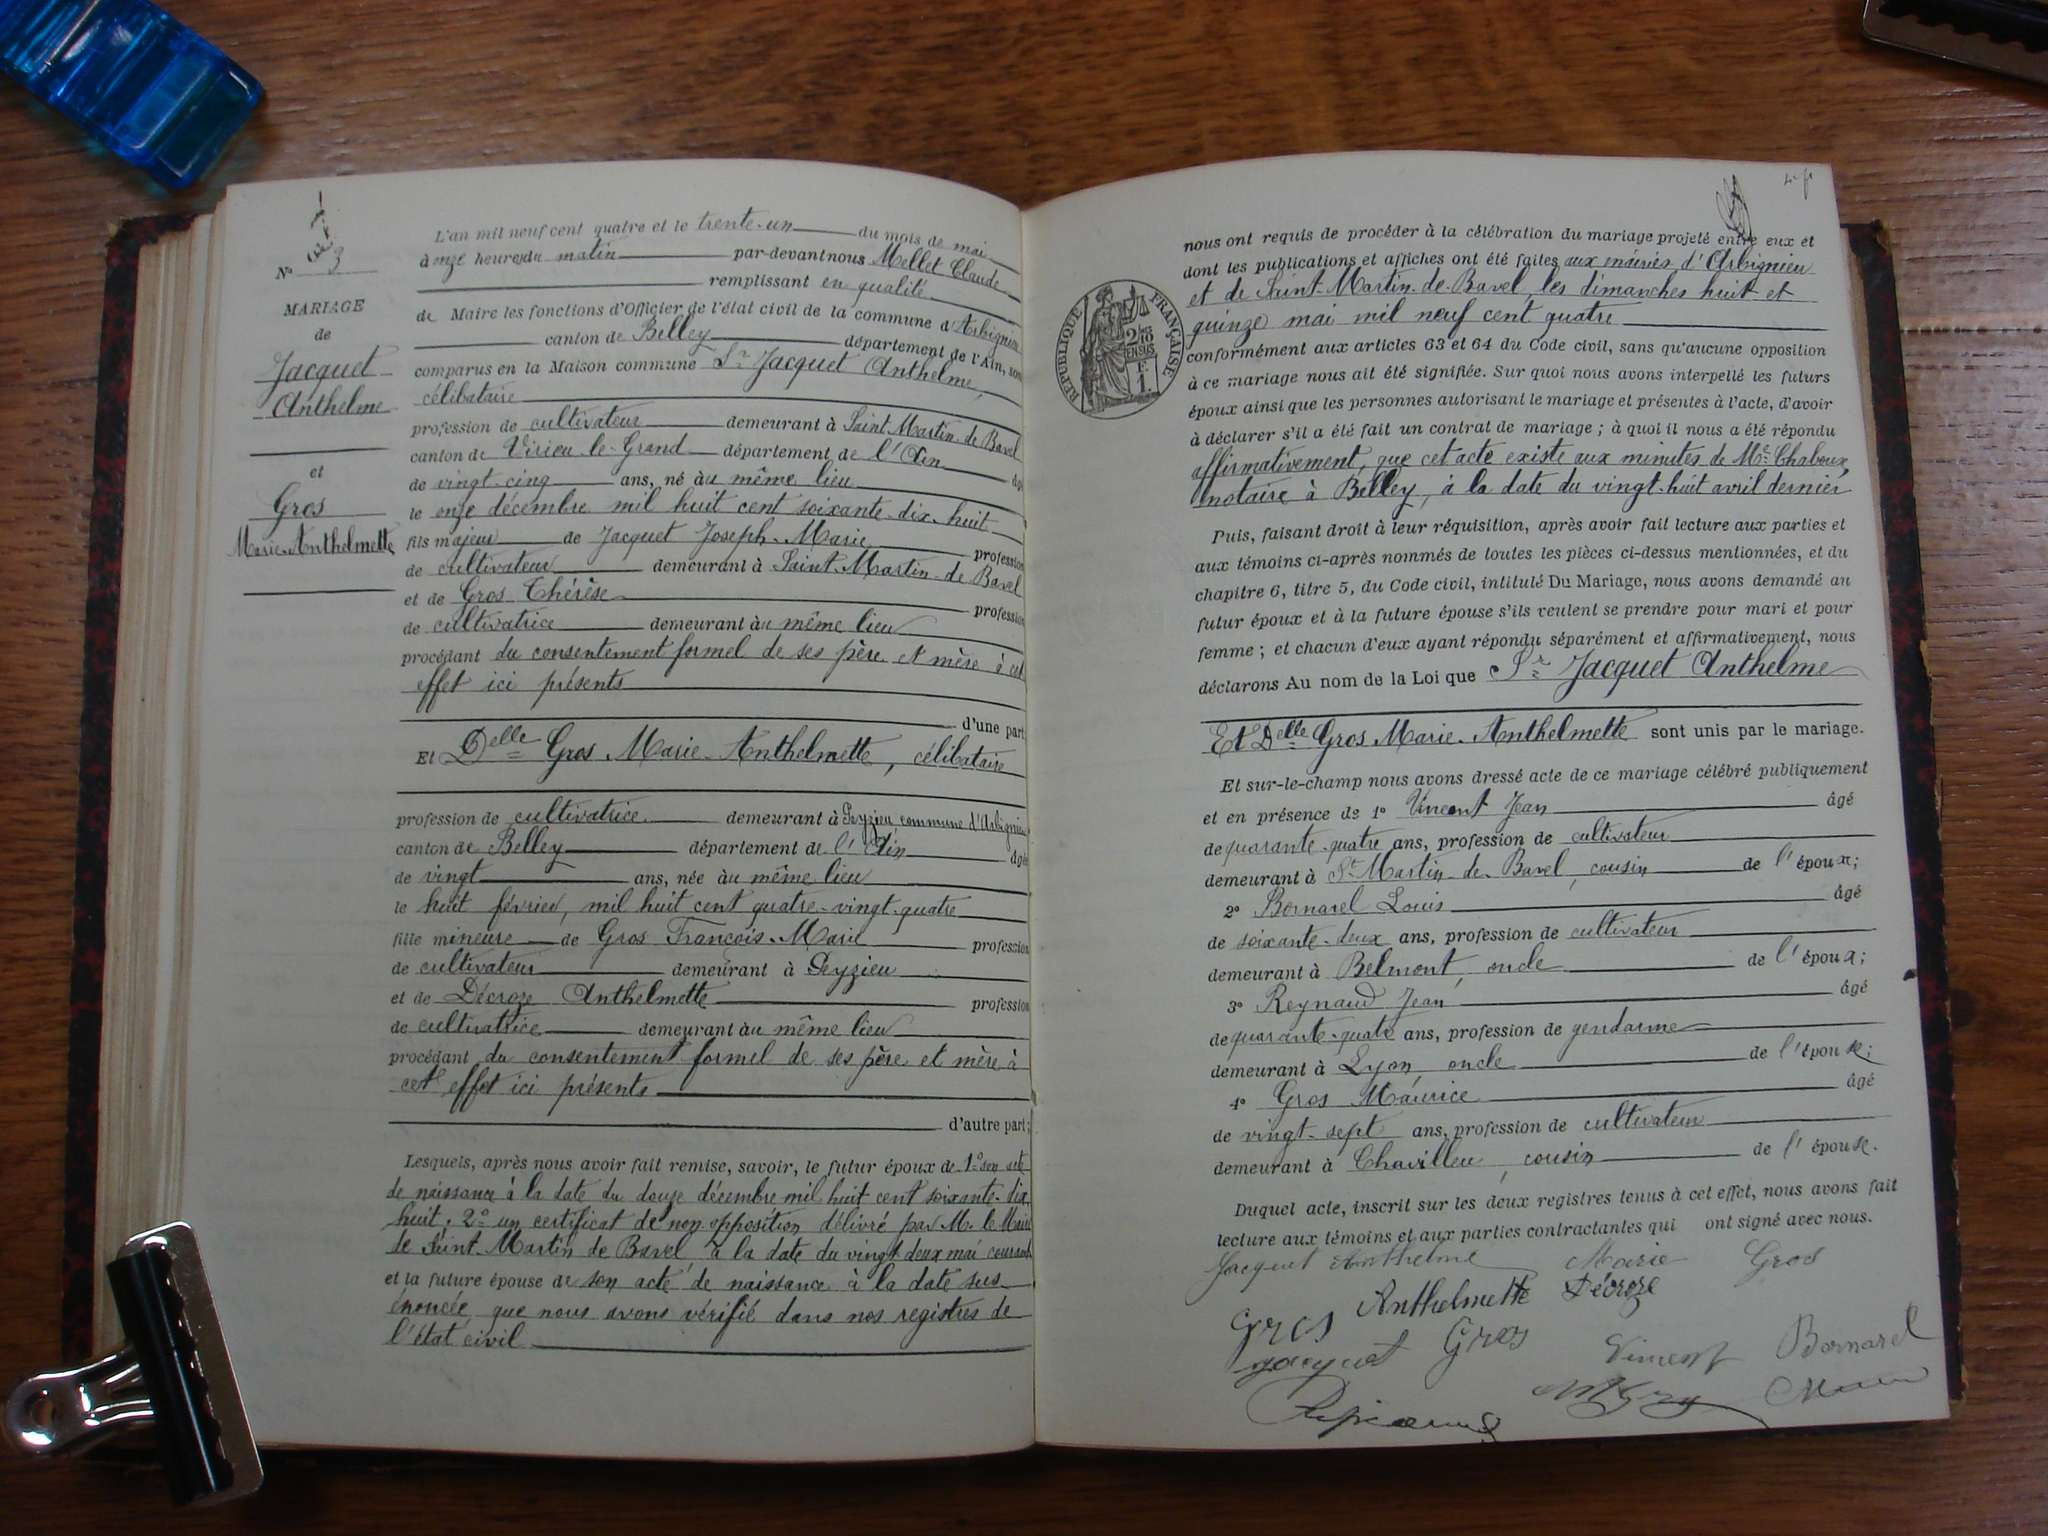 Nº 3
MARIAGE
de
Jacquet
Anthelme
et
Gros
Marie-Anthelmette
L'an mil neuf cent quatre et le trente-un du mois de mai
à onze heures du matin par-devant nous Mellet Claude
remplissant en qualité
de Maire les fonctions d'Officier de l'état civil de la commune d'Arbignieu
canton de Belley département de l'Ain, sont
comparus en la Maison commune Sr Jacquet Anthelme,
célibataire
profession de cultivateur demeurant à Saint Martin-de Bavel
canton de Virieu-le-Grand département de l'Ain âgé
de vingt-cinq ans, né au même lieu
le onze décembre mil huit cent soixante-dix-huit
fils majeur de Jacquet Joseph-Marie profession
de cultivateur demeurant à Saint-Martin-de Bavel
et de Gros Thérèse profession
de cultivatrice demeurant au même lieu
procédant du consentement formel de ses père et mère à cet
effet ici présents
d'une part
Et Delle Gros Marie-Anthelmette, célibataire
profession de cultivatrice demeurant à Peyzieu commune d'Arbignieu
canton de Belley département de l'Ain âgée
de vingt ans, née au même lieu
le huit février, mil huit cent quatre-vingt-quatre
fille mineure de Gros François-Marie profession
de cultivateur demeurant à Peyzieu
et de Décroze Anthelmette profession
de cultivatrice demeurant au même lieu
procédant du consentement formel de ses père et mère à
cet effet ici présents
d'autre part;
Lesquels, après nous avoir fait remise, savoir, le futur époux de 1º son acte
de naissance à la date du douze décembre mil huit cent soixante-dix-
huit; 2º un certificat de non opposition délivré par M. le Maire
de Saint Martin de Bavel, à la date du vingt deux mai courant
et la future épouse de son acte de naissance à la date sus-
énoncée, que nous avons vérifié dans nos registres de
l'état civil
RÉPUBLIQUE FRANÇAISE
2/10 EN SUS
1 F.
nous ont requis de procéder à la célébration du mariage projeté entre eux et
dont les publications et affiches ont été faites aux mairies d'Arbignieu
et de Saint-Martin-de-Bavel, les dimanches huit et
quinze mai mil neuf cent quatre
conformément aux articles 63 et 64 du Code civil, sans qu'aucune opposition
à ce mariage nous ait été signifiée. Sur quoi nous avons interpellé les futurs
époux ainsi que les personnes autorisant le mariage et présentes à l'acte, d'avoir
à déclarer s'il a été fait un contrat de mariage; à quoi il nous a été répondu
affirmativement, que cet acte existe aux minutes de Me Chaboux,
notaire à Belley, à la date du vingt-huit avril dernier
Puis, faisant droit à leur réquisition, après avoir fait lecture aux parties et
aux témoins ci-après nommés de toutes les pièces ci-dessus mentionnées, et du
chapitre 6, titre 5, du Code civil, intitulé Du Mariage, nous avons demandé au
futur époux et à la future épouse s'ils veulent se prendre pour mari et pour
femme; et chacun d'eux ayant répondu séparément et affirmativement, nous
déclarons Au nom de la Loi que Sr Jacquet Anthelme
Et Delle Gros Marie-Anthelmette sont unis par le mariage.
Et sur-le-champ nous avons dressé acte de ce mariage célébré publiquement
et en présence de 1º Vincent Jean âgé
de quarante-quatre ans, profession de cultivateur
demeurant à St Martin-de-Bavel, cousin de l'époux;
2º Bornarel Louis âgé
de soixante-deux ans, profession de cultivateur
demeurant à Belmont, oncle de l'époux;
3º Reynaud Jean âgé
de quarante-quatre ans, profession de gendarme
demeurant à Lyon, oncle de l'épouse;
4º Gros Maurice âgé
de vingt-sept ans, profession de cultivateur
demeurant à Chavilleu, cousin de l'épouse.
Duquel acte, inscrit sur les deux registres tenus à cet effet, nous avons fait
lecture aux témoins et aux parties contractantes qui ont signé avec nous.
Jacquet Anthelme Marie Gros
Gros Anthelmette Décroze
Jacquet Gros Vincent Bornarel